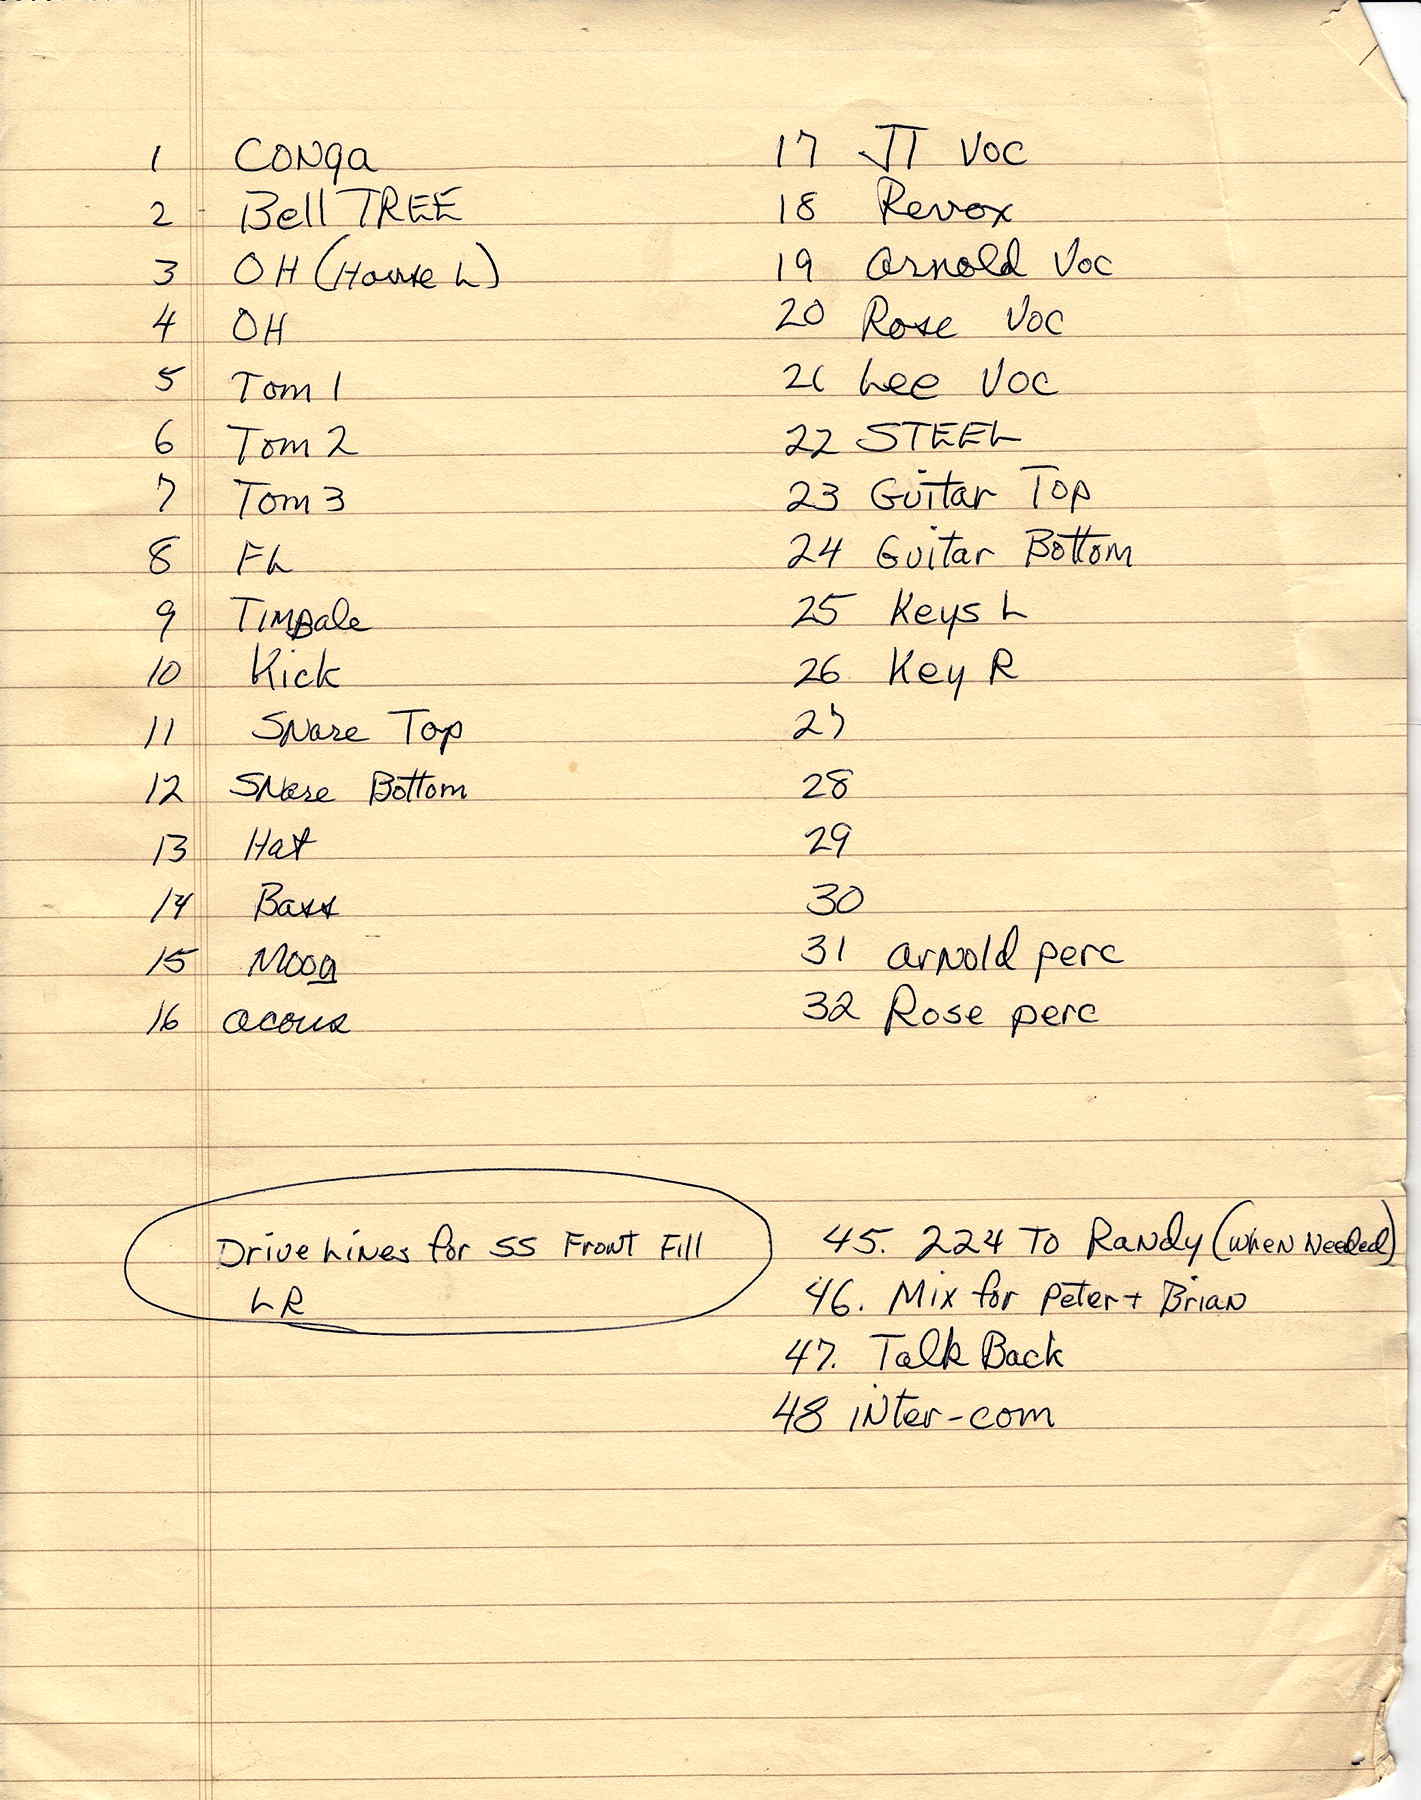 1 Conga
2 Bell TREE
3 OH (House L)
4 OH
5 Tom 1
6 Tom 2
7 Tom 3
8 FL
9 TIMBale
10 Kick
11 SNare Top
12 SNare Bottom
13 Hat
14 Bass
15 Moog
16 acous
17 JT Voc
18 Revox
19 arnold Voc
20 Rose Voc
21 Lee Voc
22 STEEL
23 Guitar Top
24 Guitar Bottom
25 Keys L
26 Key R
27
28
29
30
31 arNold perc
32 Rose perc
Drive LiNes for SS Front Fill
L R
45. 224 To RaNdy (wheN Needed)
46. Mix for Peter + BriaN
47. Talk Back
48 iNter-com